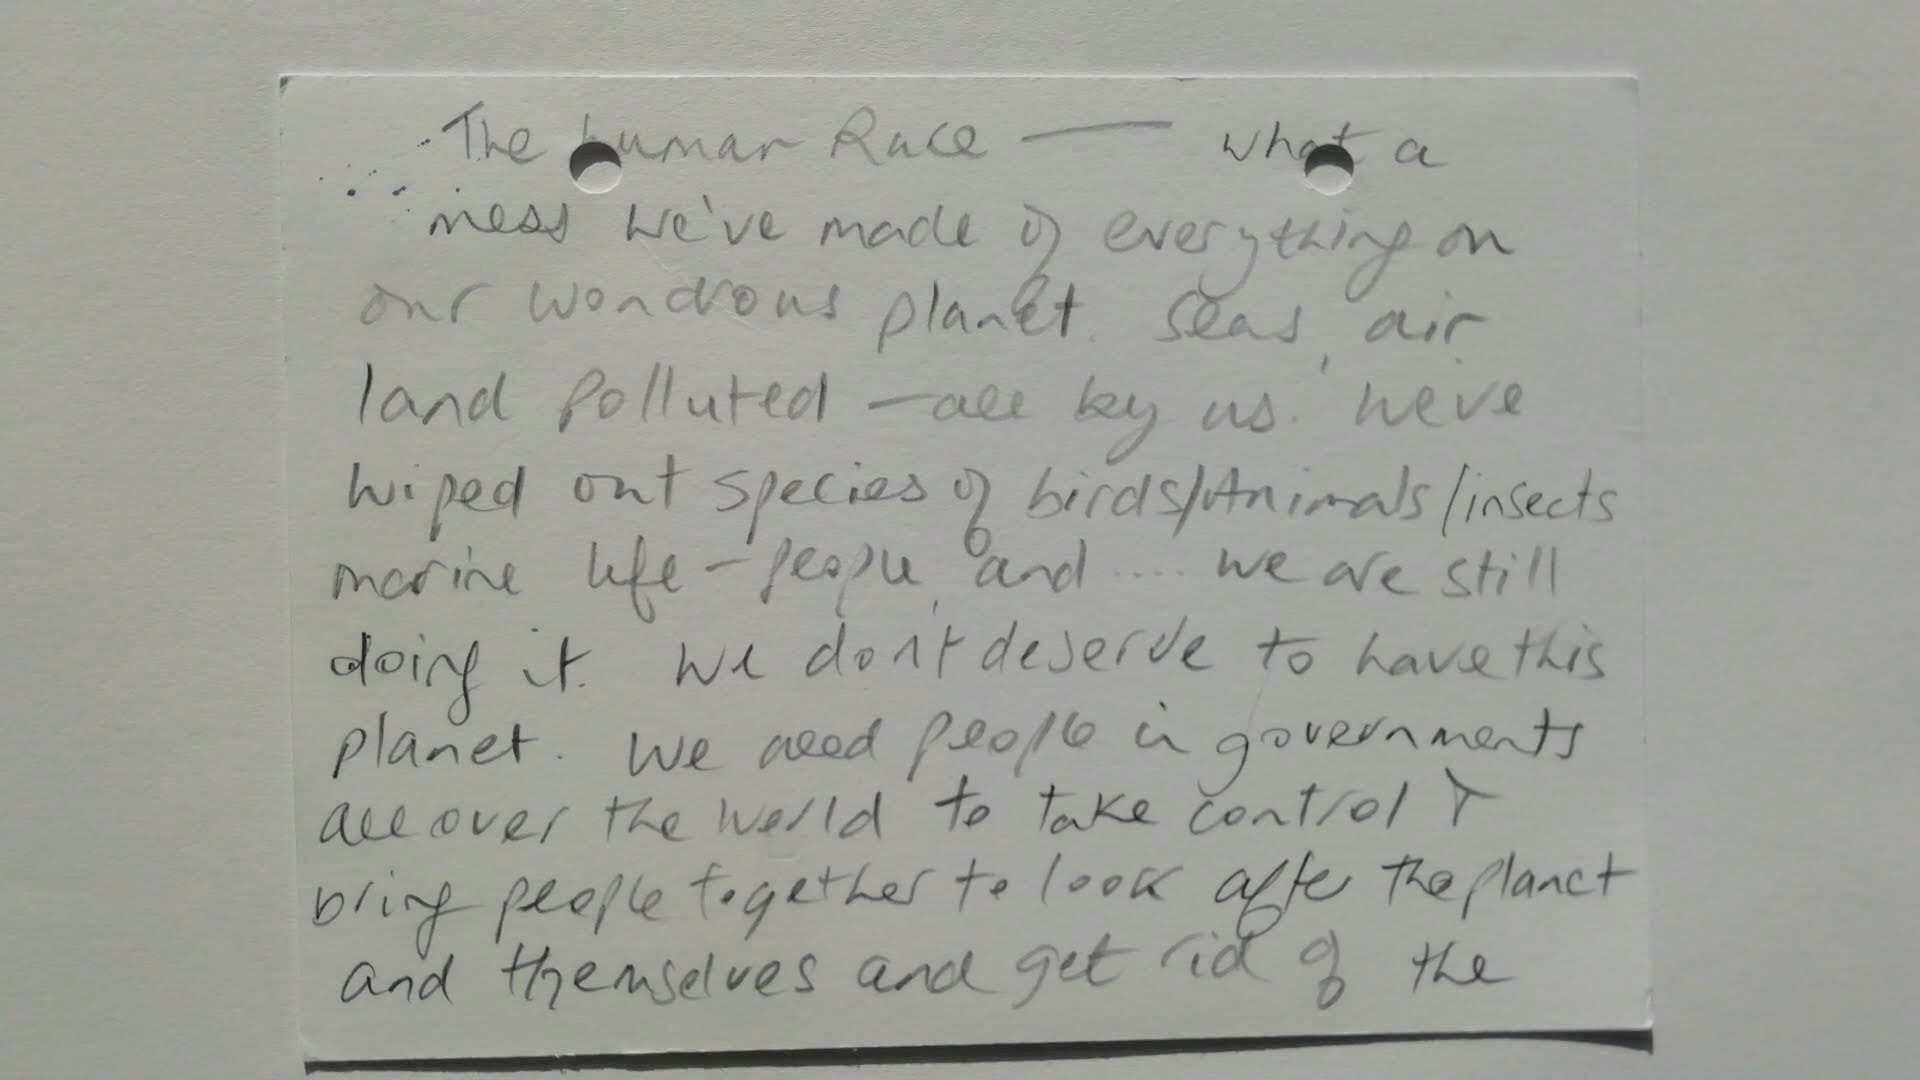 The human Race — what a
mess we've made of everything on
our wondrous planet. Seas, air
land polluted — all by us. We've
wiped out species of birds/Animals/insects
marine life - people, and .... we are still
doing it. We don't deserve to have this
planet. We need people in governments
all over the world to take control +
bring people together to look after the planet
and themselves and get rid of the